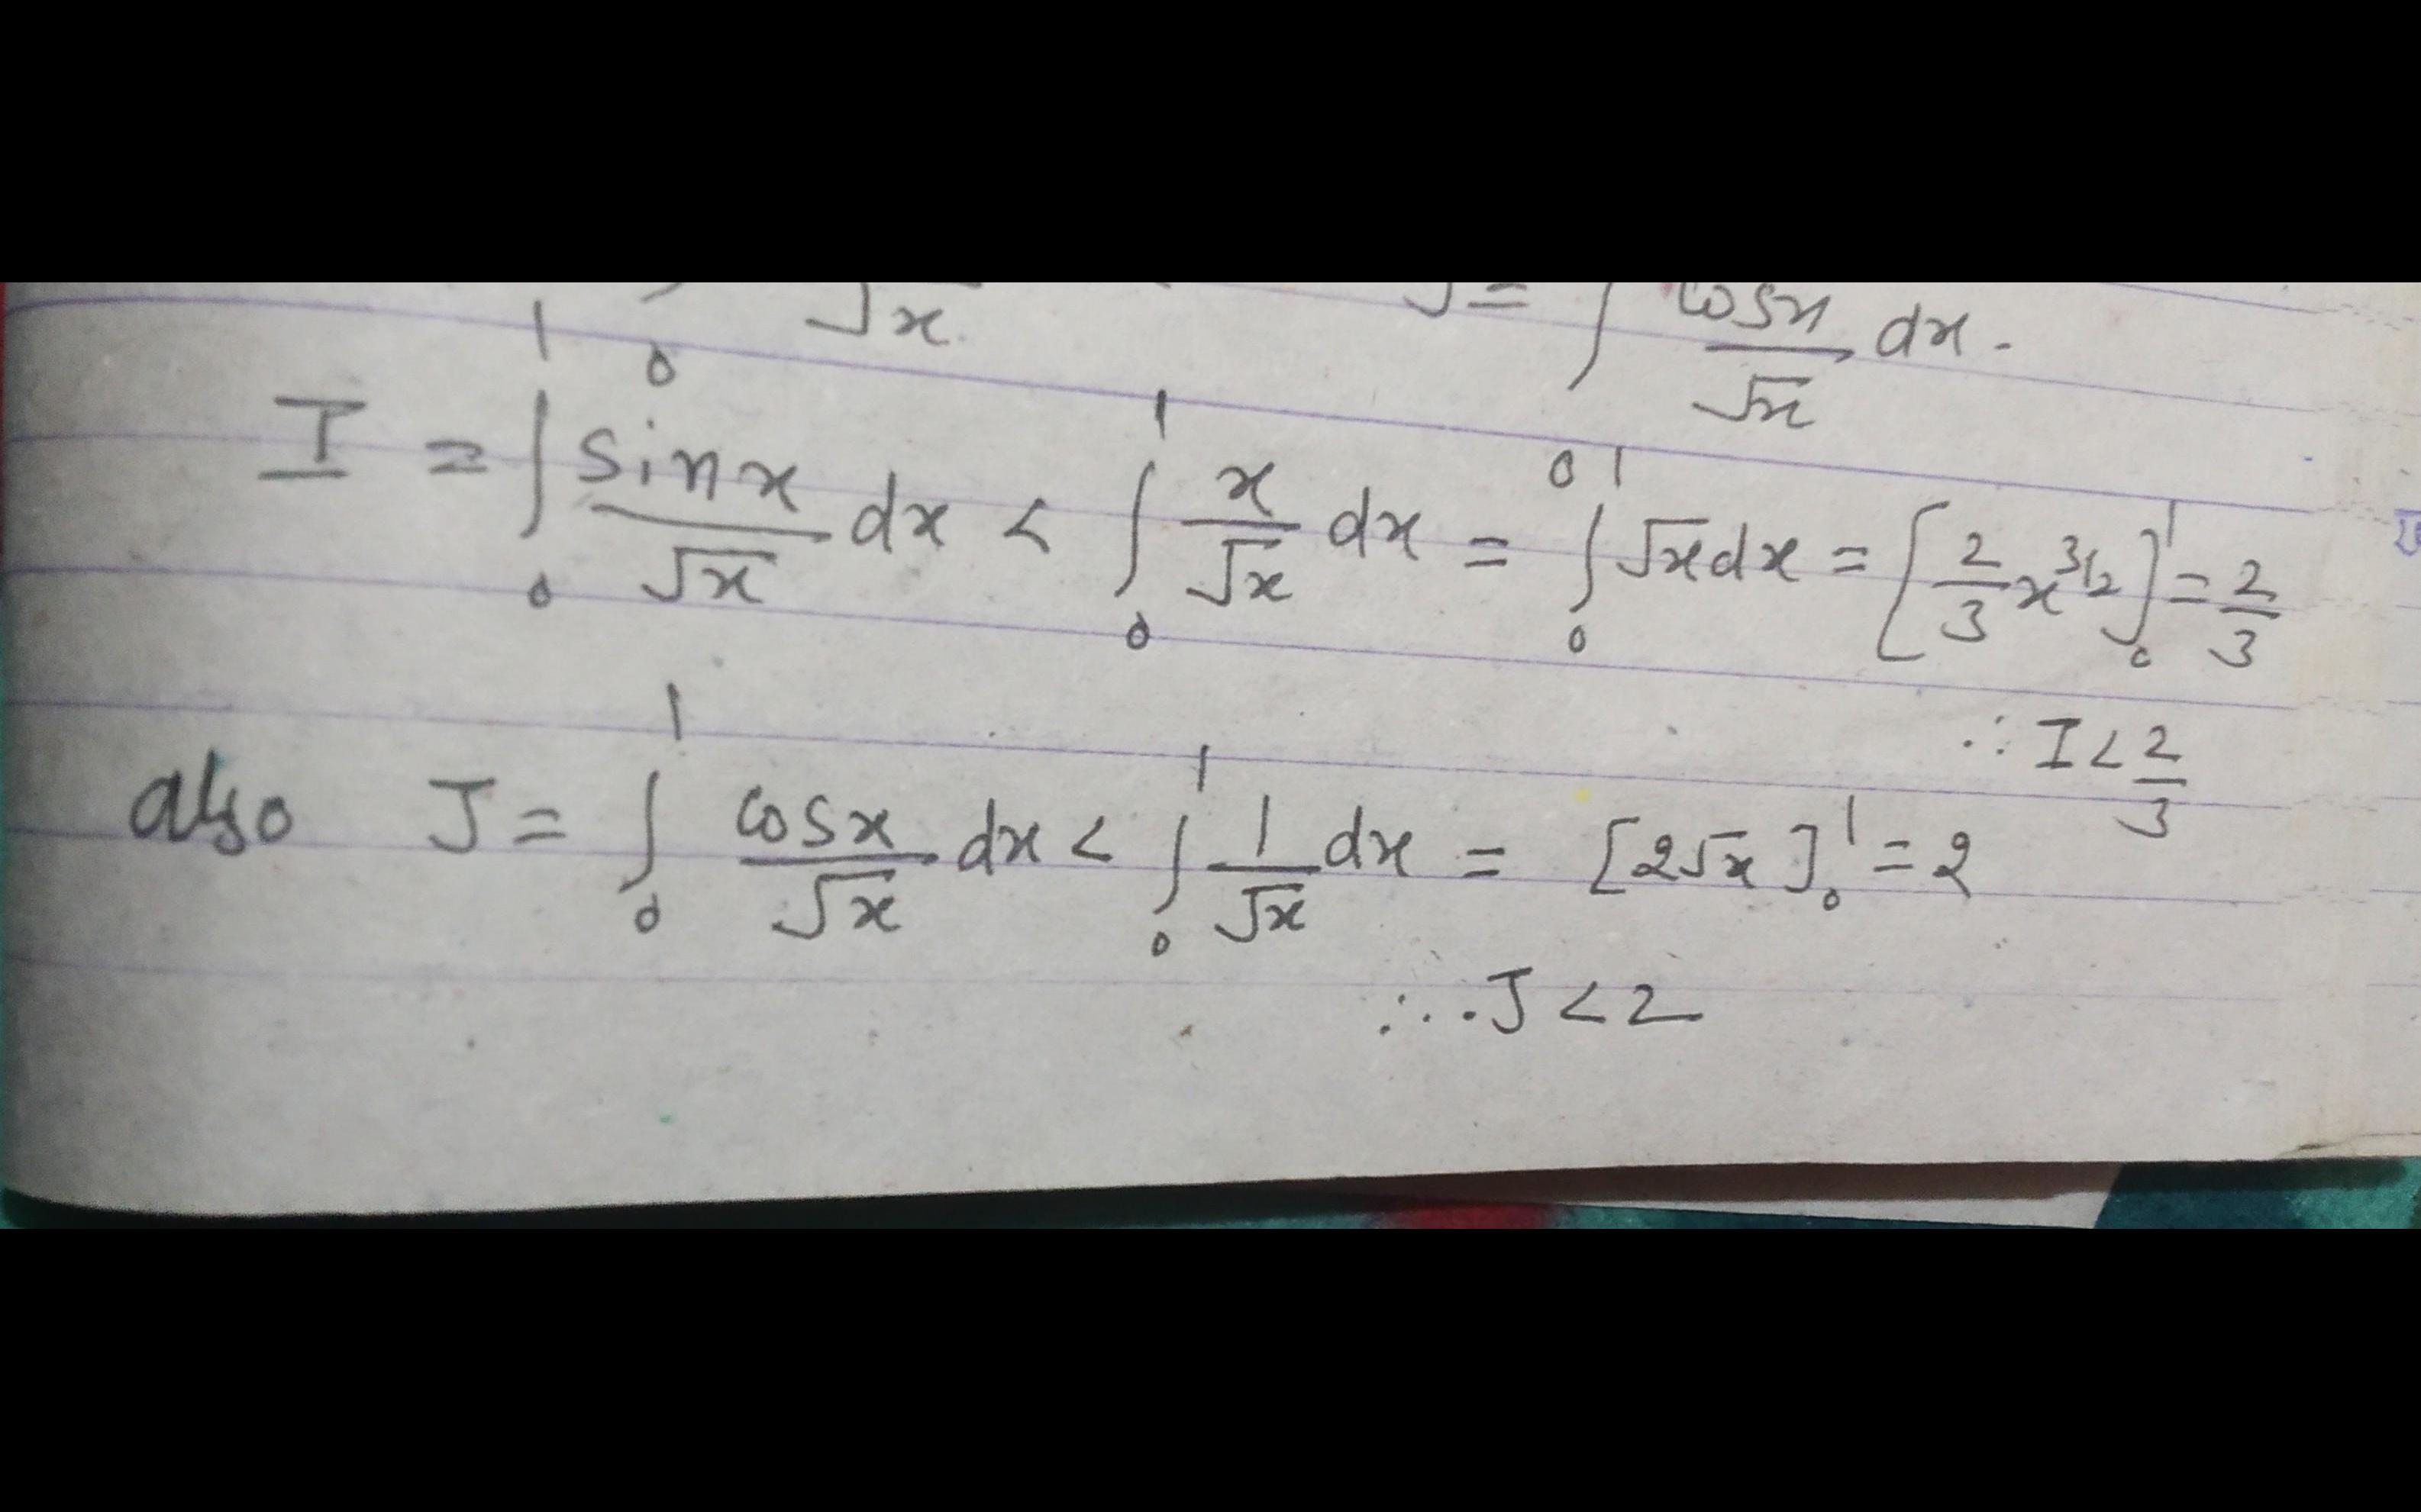 √x J = ∫ cosx/√x dx.
I = ∫₀¹ sinx/√x dx < ∫₀¹ x/√x dx = ∫₀¹ √x dx = [2/3 x^3/2]₀¹ = 2/3
∴ I < 2/3
also J = ∫₀¹ cosx/√x dx < ∫₀¹ 1/√x dx = [2√x]₀¹ = 2
∴ J < 2